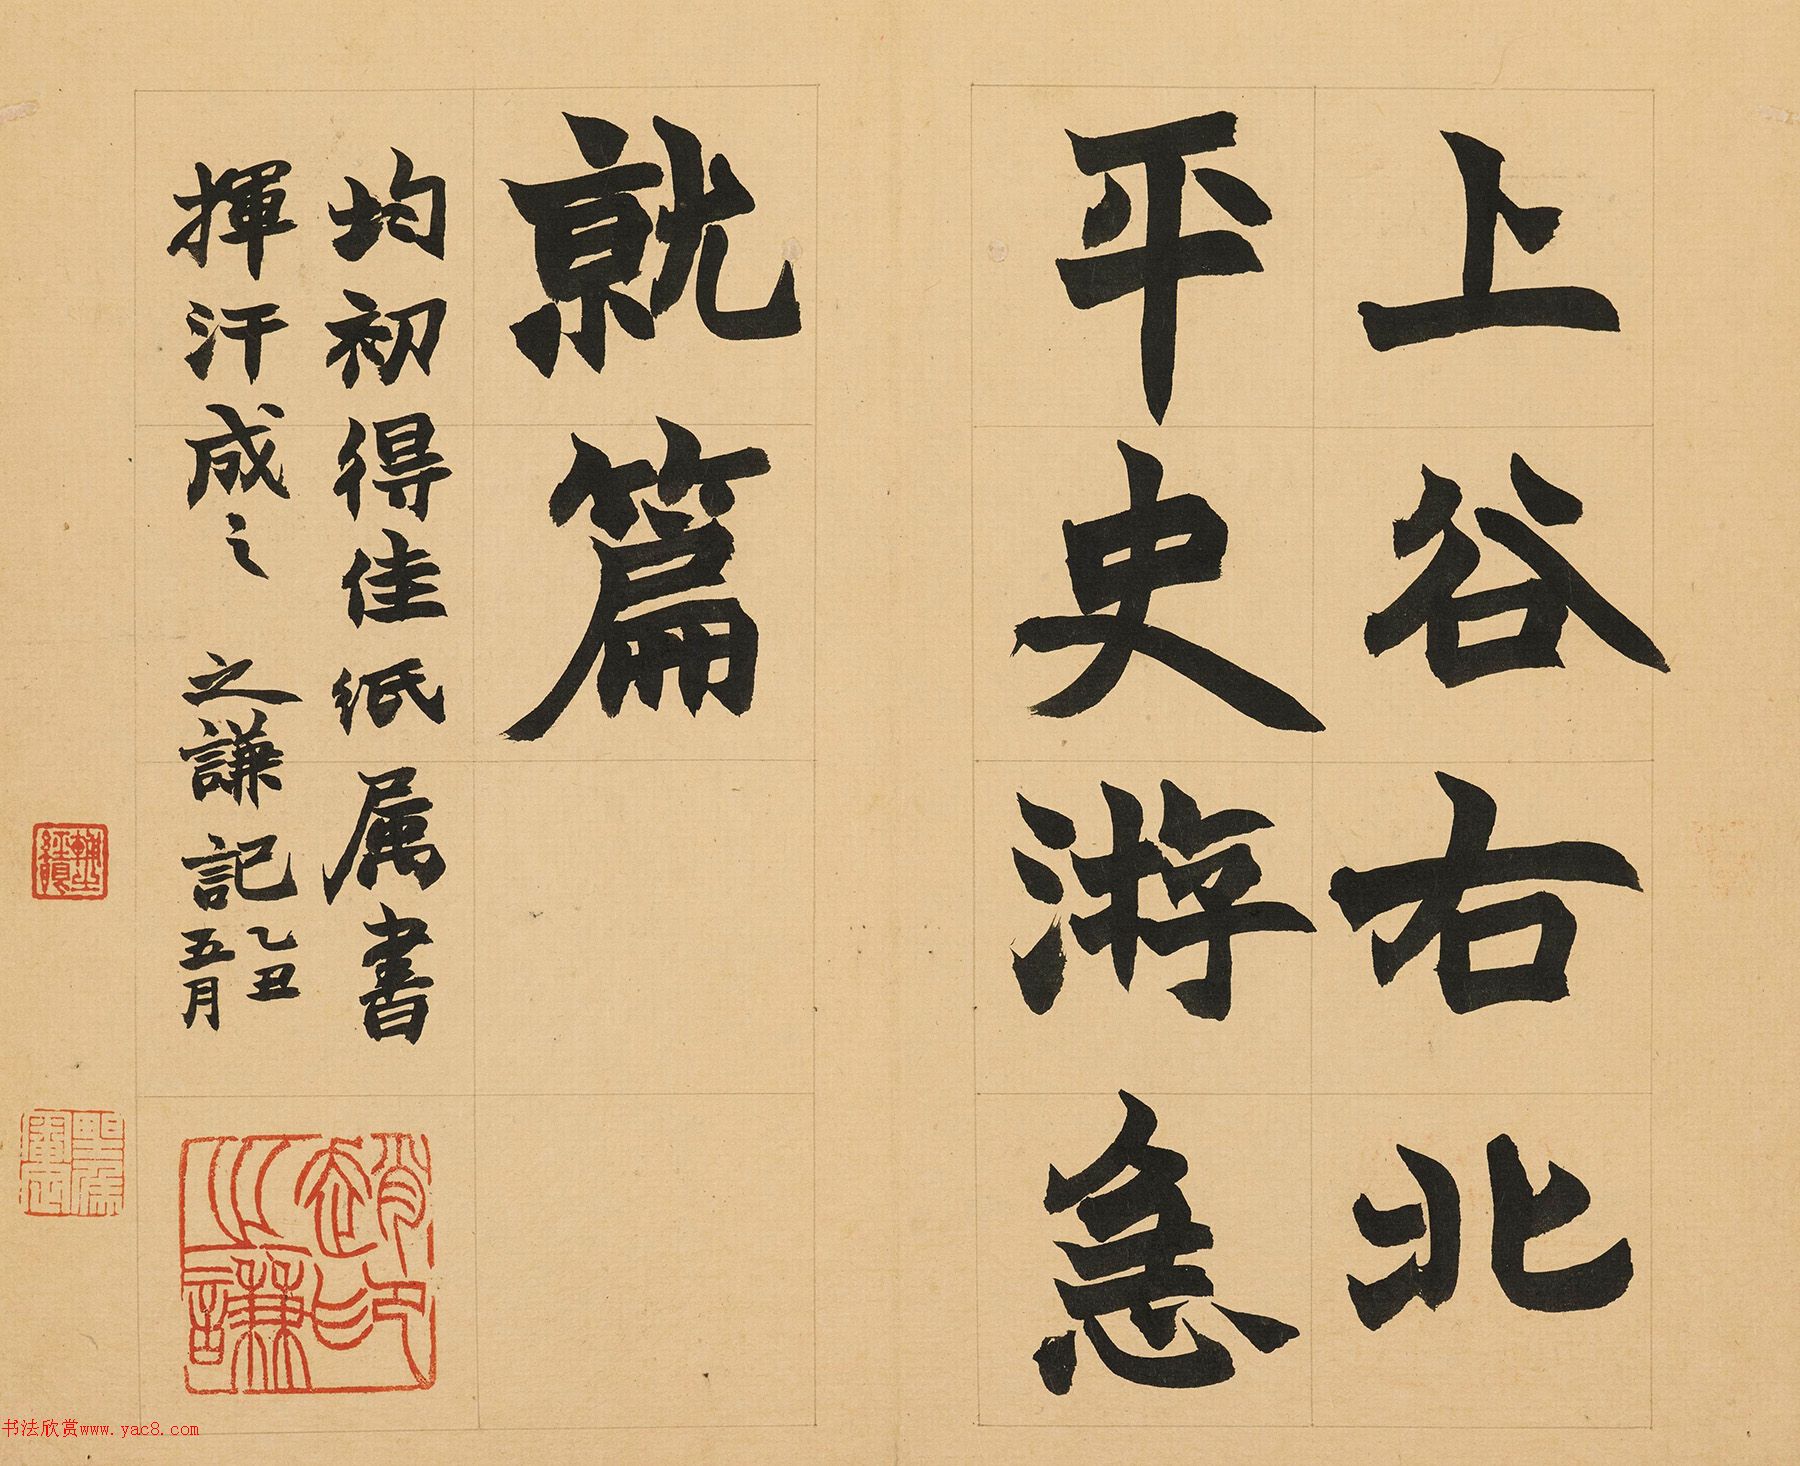 上谷右北
平史游急
就篇
均初得佳紙属書
揮汗成之 之謙記 乙丑
五月
趙氏之謙印
书法欣赏www.yac8.com